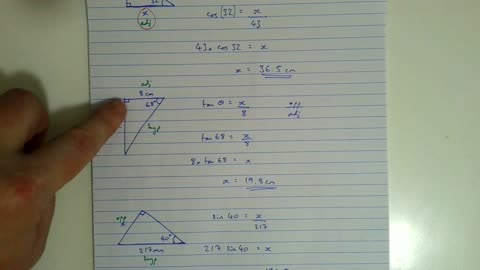 32
x
adj
cos (32) = x
43
43 x cos 32 = x
x = 36.5 cm
adj
8 cm
68°
hyp
tan θ = x
8
opp
adj
tan 68 = x
8
8 x tan 68 = x
x = 19.8 cm
opp
x
40°
217 mm
hyp
sin 40 = x
217
217 sin 40 = x